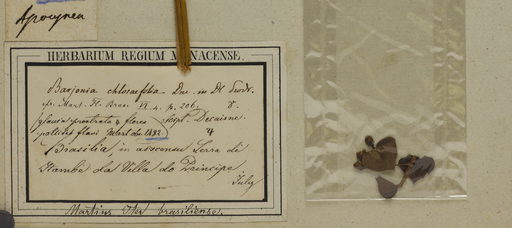 Apocyneae
HERBARIUM REGIUM MONACENSE.
Barjonia chloraefolia Dne. in DC Prodr.
cfr. Mart. Fl. Bras. VI. 4. p. 206. 8.
glauca prostrata & flores scpt. Decaisne
pallide flavi Mart. obs. 1482 4
Brasilia in ascensu Serra de
Itambe da Villa do Principe.
July
Martius Iter brasiliense.